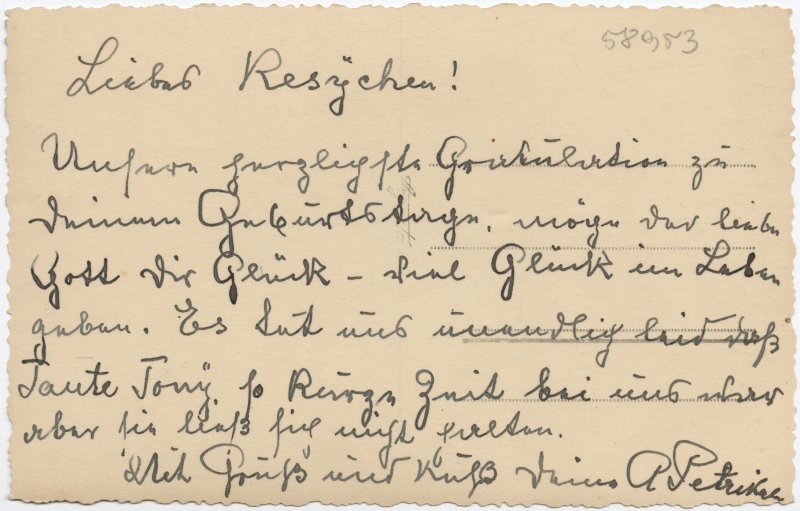 58953
Liebes Resychen!
Unsere herzlichste Gratulation zu
Deinem Geburtstage, möge der liebe
Gott Dir Glück – viel Glück im Leben
geben. Es tut uns unendlich leid daß
Tante Tony so kurze Zeit bei uns war
aber sie ließ sich nicht halten.
Mit Gruß und Kuß Deine A Petrikat